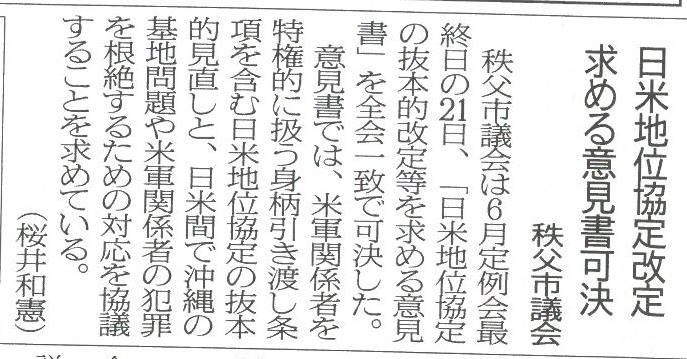 日米地位協定改定
求める意見書可決
秩父市議会
秩父市議会は6月定例会最
終日の21日、「日米地位協定
の抜本的改定等を求める意見
書」を全会一致で可決した。
意見書では、米軍関係者を
特権的に扱う身柄引き渡し条
項を含む日米地位協定の抜本
的見直しと、日米間で沖縄の
基地問題や米軍関係者の犯罪
を根絶するための対応を協議
することを求めている。
(桜井和憲)